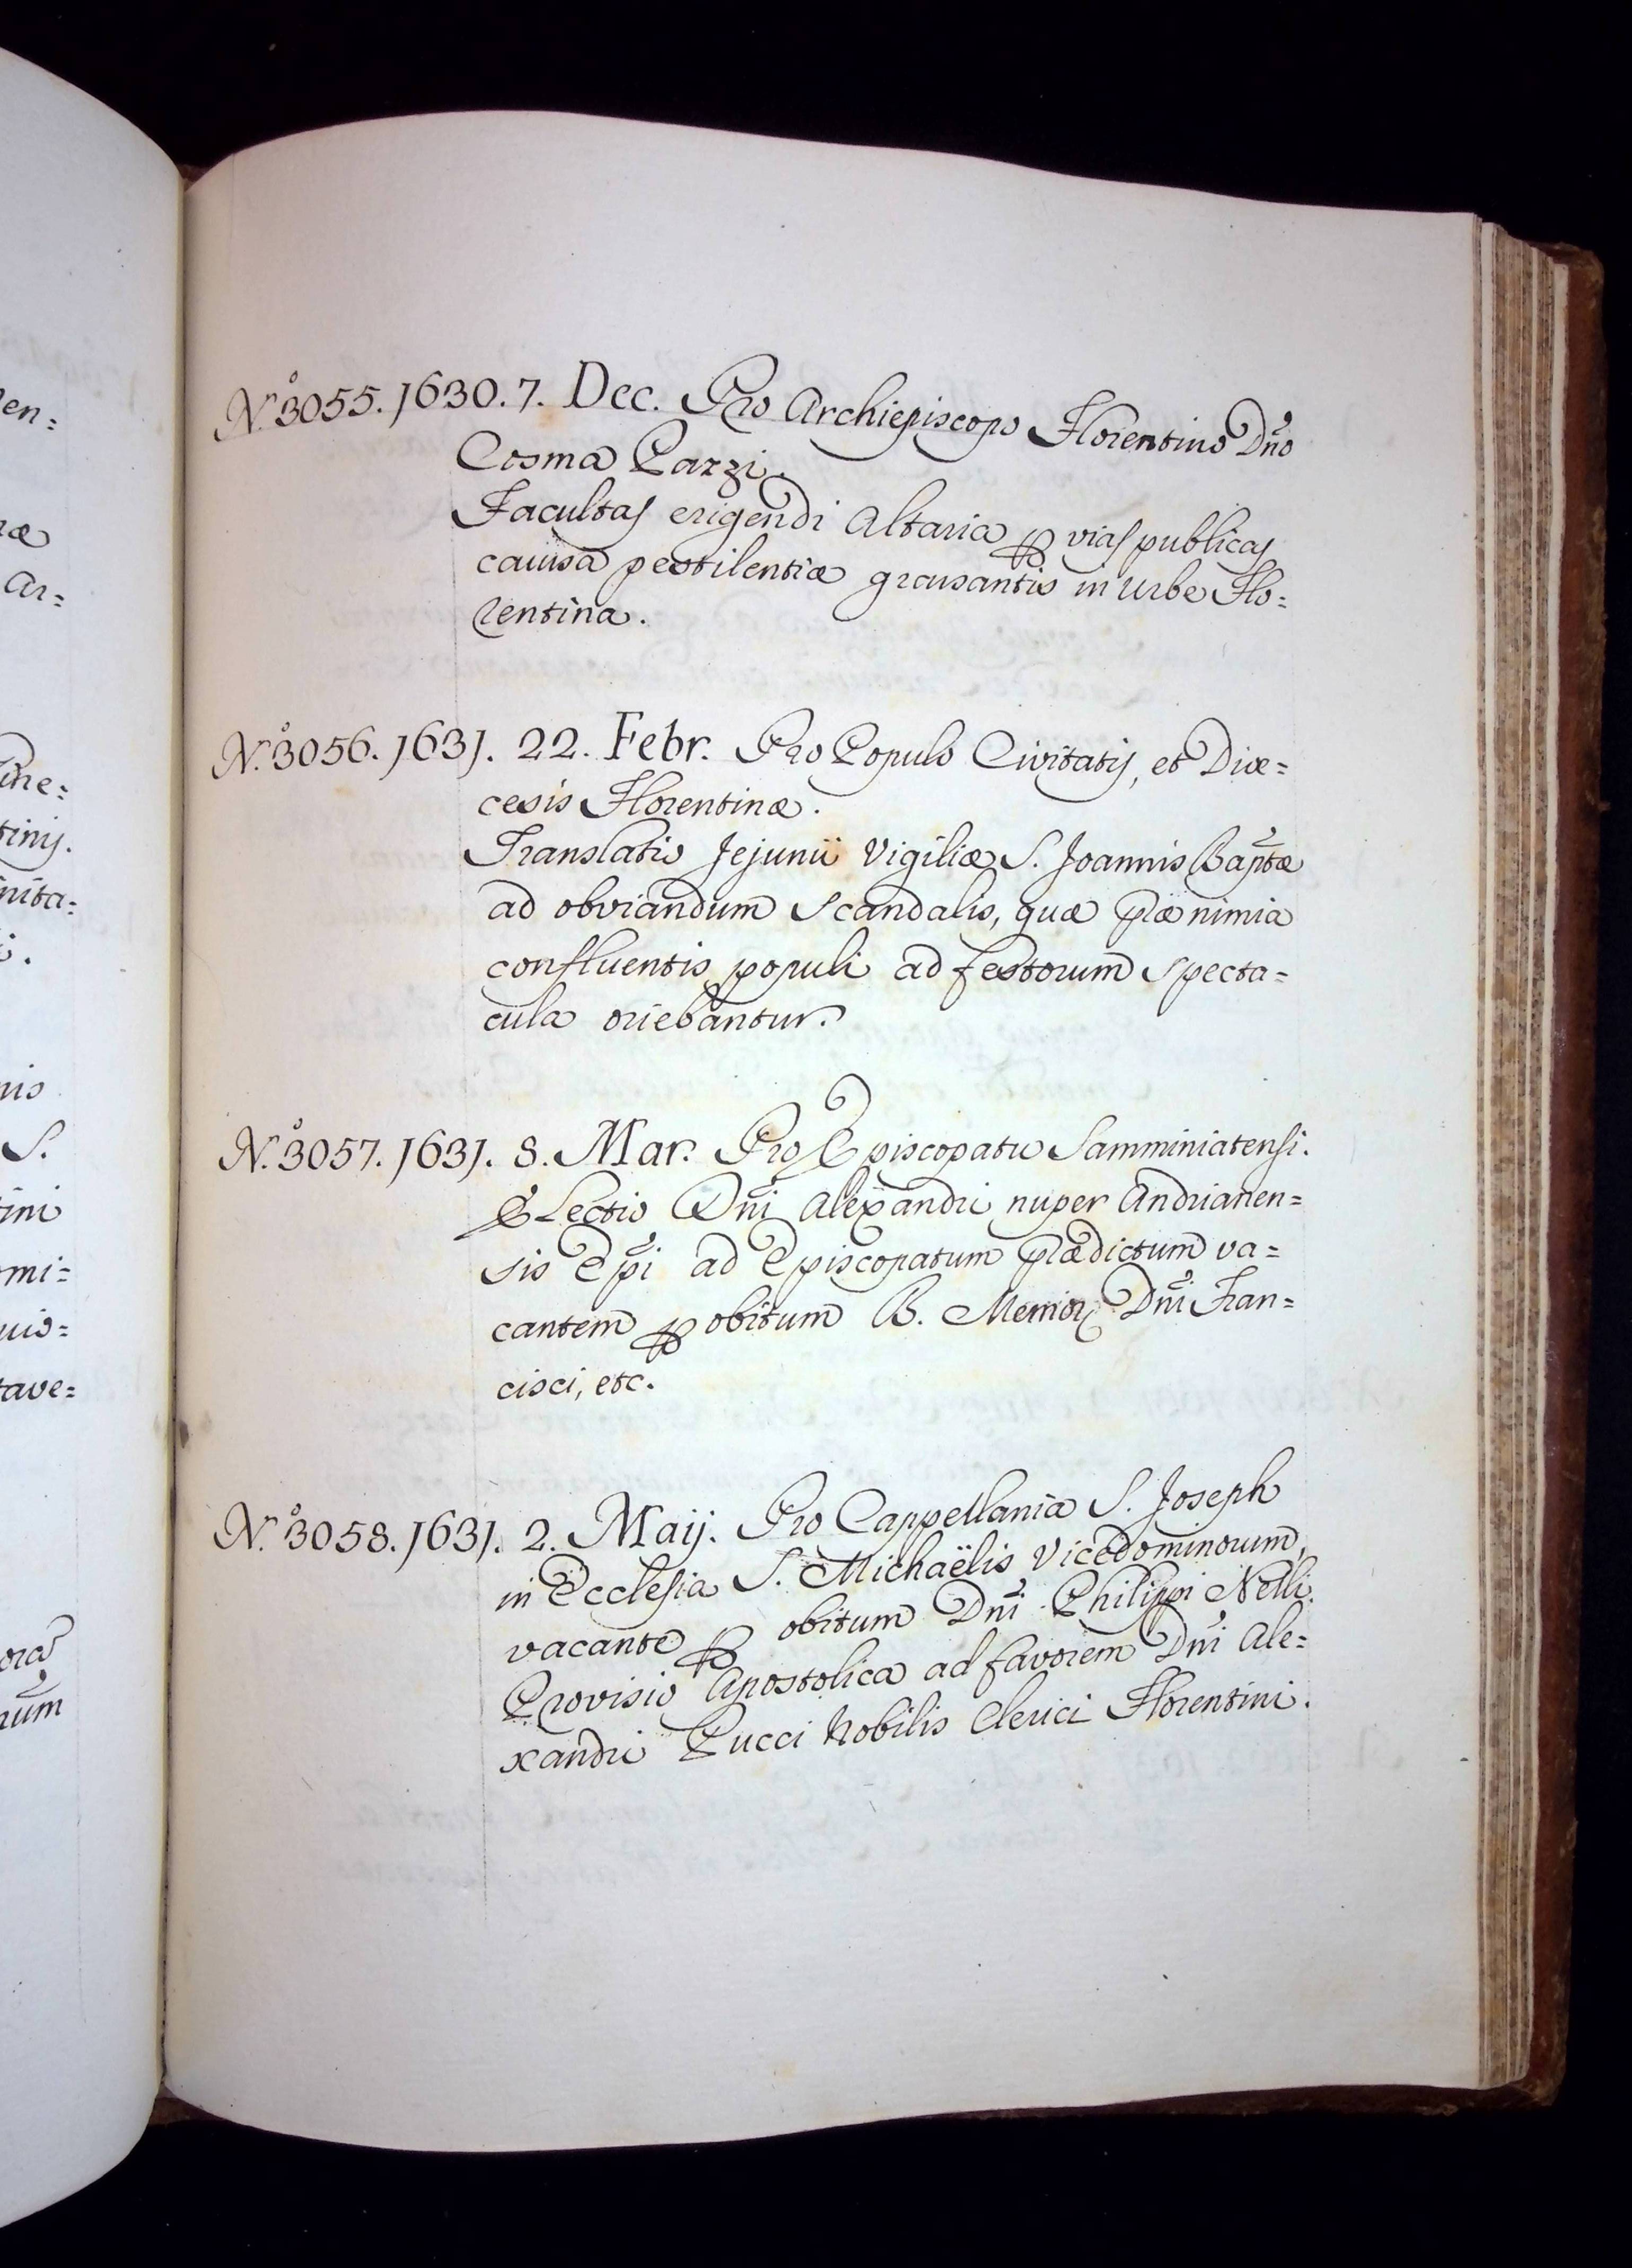 en=
æ
Ar=
ine=
tinij.
nita=
nis
S.
tini
mi=
uis=
tave=
num
N.º 3055. 1630. 7. Dec. Pro Archiepiscopo Florentino Dño
Cosma Pazzi.
Facultas erigendi Altaria ꝑ vias publicas
causa pestilentiæ grassantis in Urbe Flo=
rentina.
N.º 3056. 1631. 22. Febr. Pro Populo Civitatis, et Diœ=
cesis Florentinæ.
Translatio Jejunii Vigiliæ S. Joannis Baptæ
ad obviandum scandalis, quæ præ nimia
confluentis populi ad festorum specta=
cula oriebantur.
N.º 3057. 1631. 8. Mar. Pro Episcopatu Samminiatensi.
Electio Dñi Alexandri nuper Andrianen=
sis Epĩ ad Episcopatum prædictum va=
cantem ꝑ obitum B. Memor. Dñi Fran=
cisci, etc.
N.º 3058. 1631. 2. Maij. Pro Cappellania S. Joseph
in Ecclesia S. Michaëlis Vicedominorum,
vacante ꝑ obitum Dñi Philippi Nelli.
Provisio Apostolica ad favorem Dñi Ale=
xandri Pucci Nobilis Clerici Florentini.